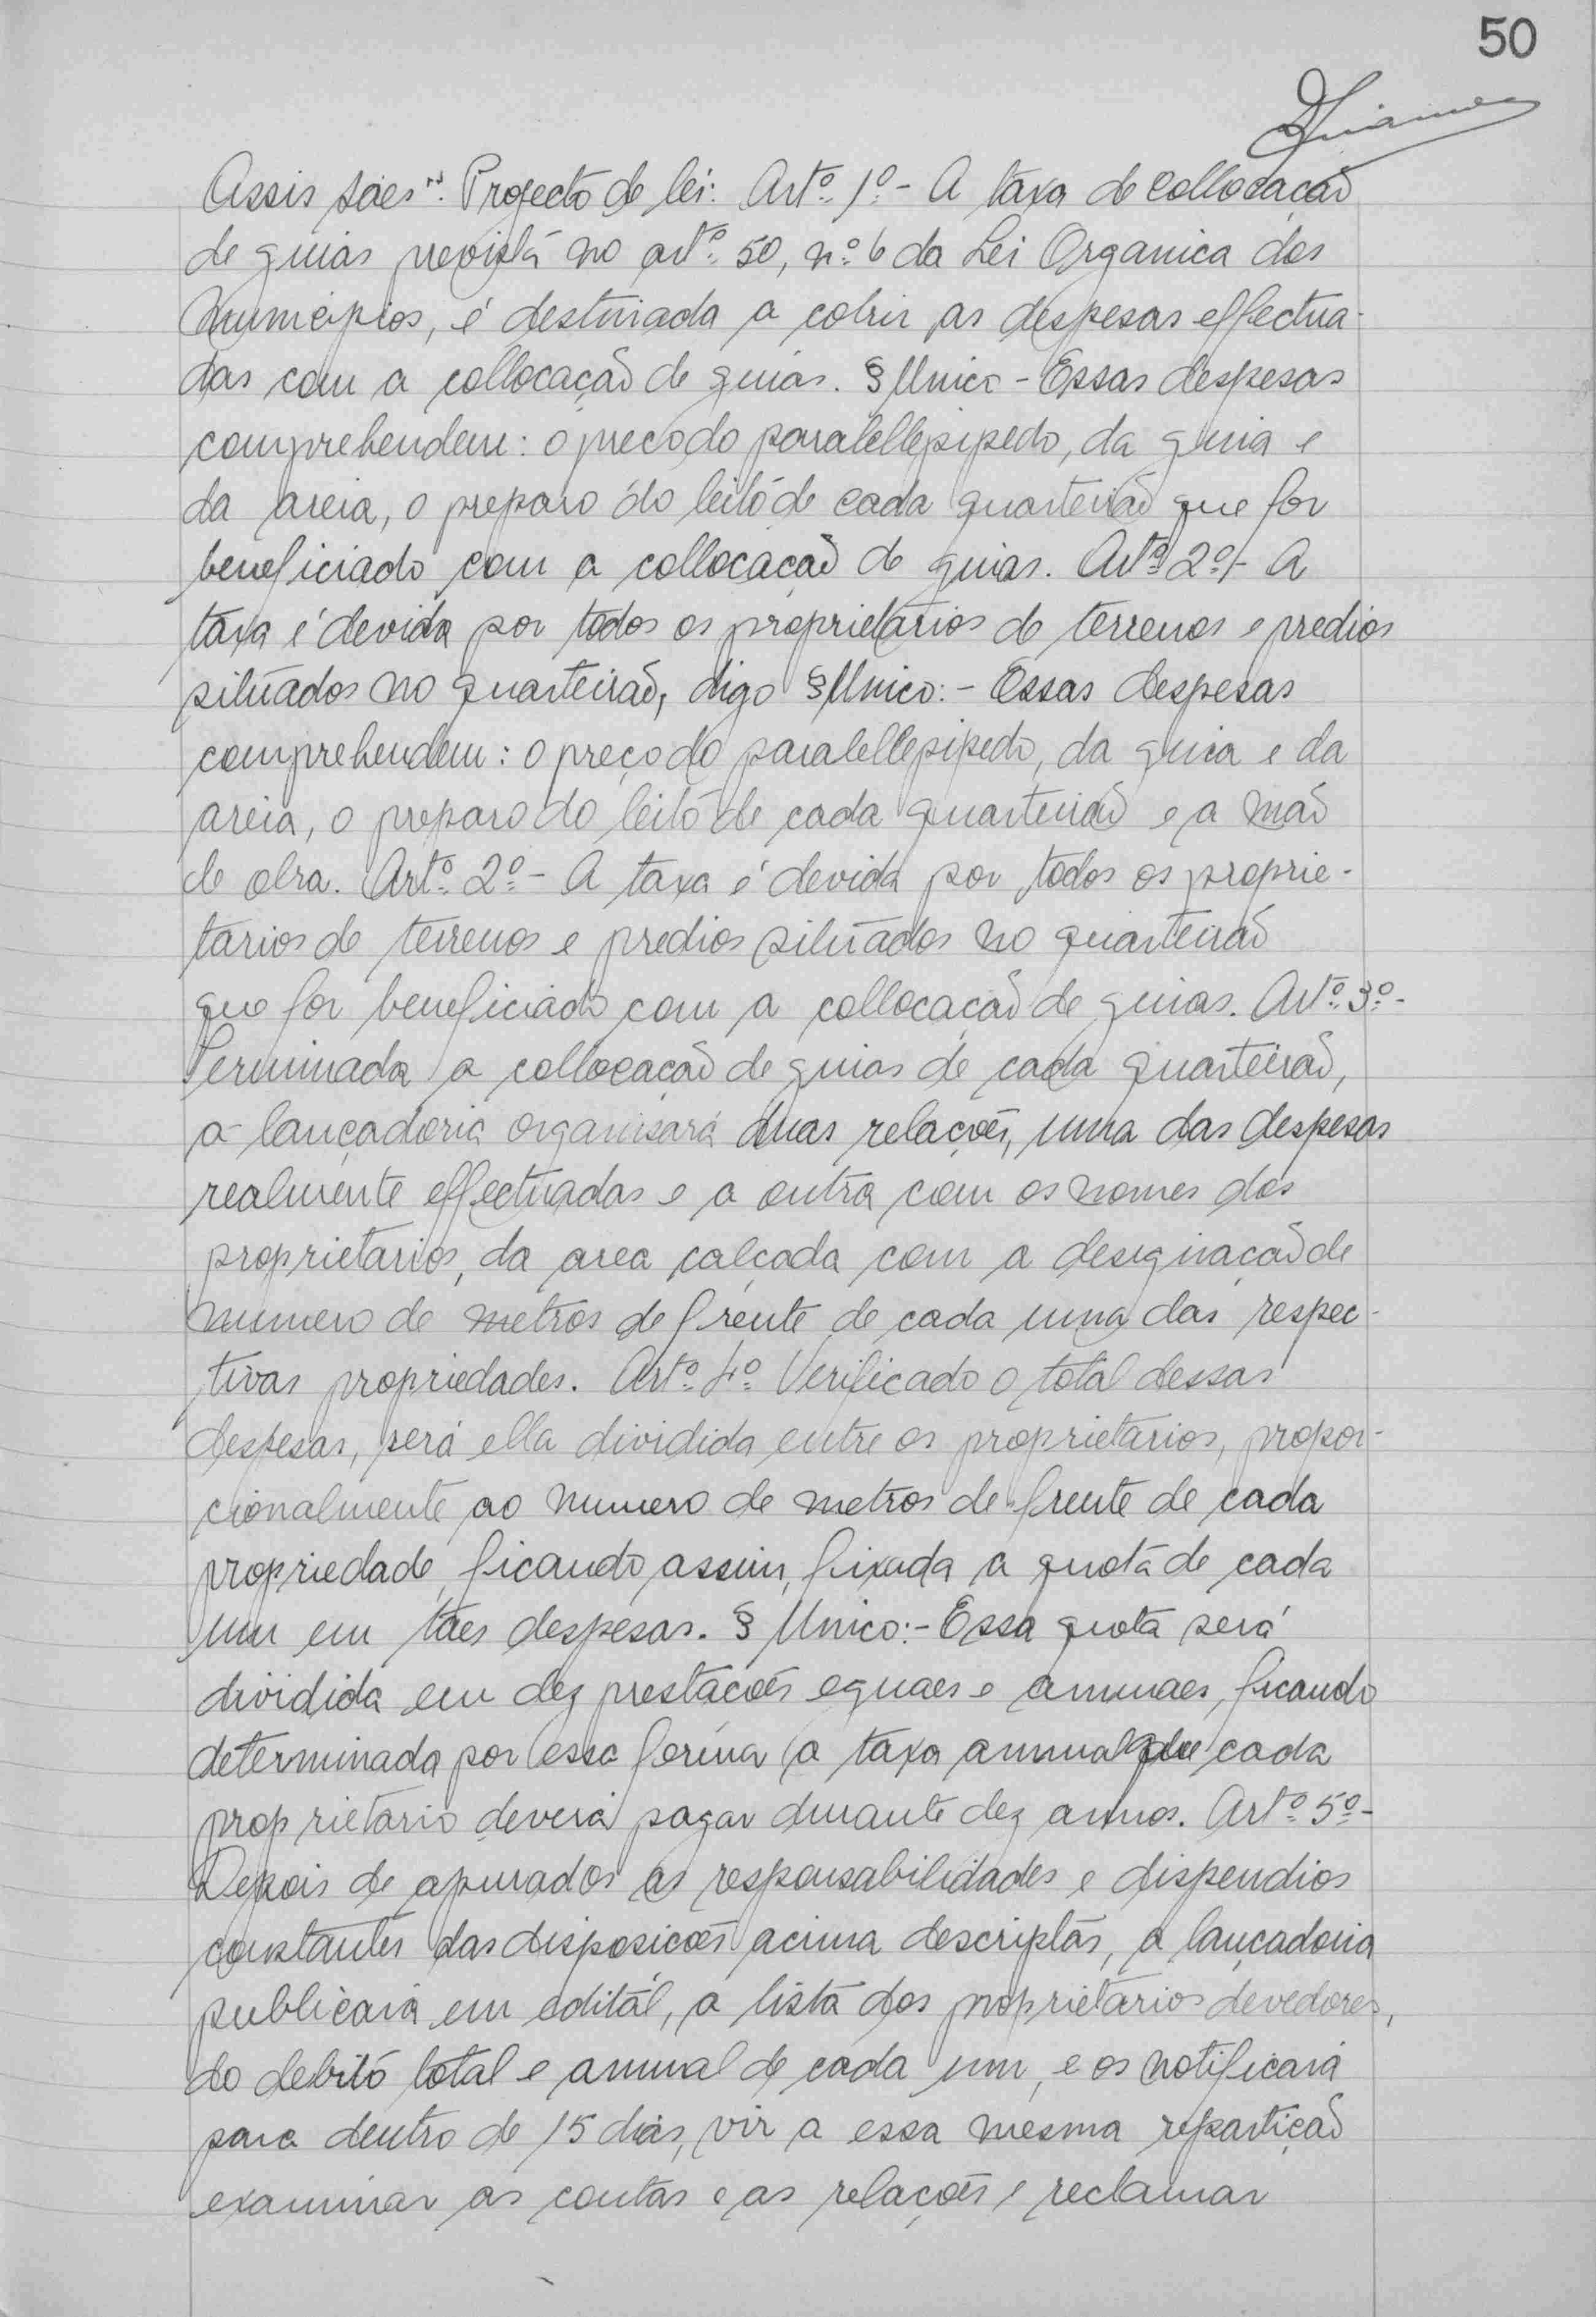 50
Assis Sáes". Projecto de lei: Artº. 1º.- A taxa de collocação
de guias prevista no artº. 50, nº. 6 da Lei Organica dos
Municipios, é destinada a cobrir as despesas effectua-
das com a collocação de guias. § Unico - Essas despesas
comprehendem: o preço do paralellepipedo, da guia e
da areia, o preparo do leito de cada quarteirão que for
beneficiado com a collocação de guias. Artº. 2º.- A
taxa é devida por todos os proprietarios de terrenos e predios
situados no quarteirão, digo § Unico:- Essas despesas
comprehendem: o preço do paralellepipedo, da guia e da
areia, o preparo do leito de cada quarteirão e a mão
de obra. Artº. 2º.- A taxa é devida por todos os proprie-
tarios de terrenos e predios situados no quarteirão
que for beneficiado com a collocação de guias. Artº. 3º.-
Terminada a collocação de guias de cada quarteirão,
a lançadoria organisará duas relações, uma das despesas
realmente effectuadas e a outra com os nomes dos
proprietarios, da area calçada com a designação de
numero de metros de frente de cada uma das respec-
tivas propriedades. Artº. 4º. Verificado o total dessas
despesas, será ella dividida entre os proprietarios, propor-
cionalmente ao numero de metros de frente de cada
propriedade, ficando assim, fixada a quota de cada
um em táes despesas. § Unico:- Essa quota será
dividida em dez prestações eguaes e annuaes, ficando
determinada por essa forma a taxa annual que cada
proprietario deverá pagar durante dez annos. Artº. 5º.-
Depois de apurados as responsabilidades e dispendios
constantes das disposições acima descriptas, a lançadoria
publicará em edital, a lista dos proprietarios devedores,
do debito total e annual de cada um, e os notificará
para dentro de 15 dias, vir a essa mesma repartição
examinar as contas e as relações e reclamar